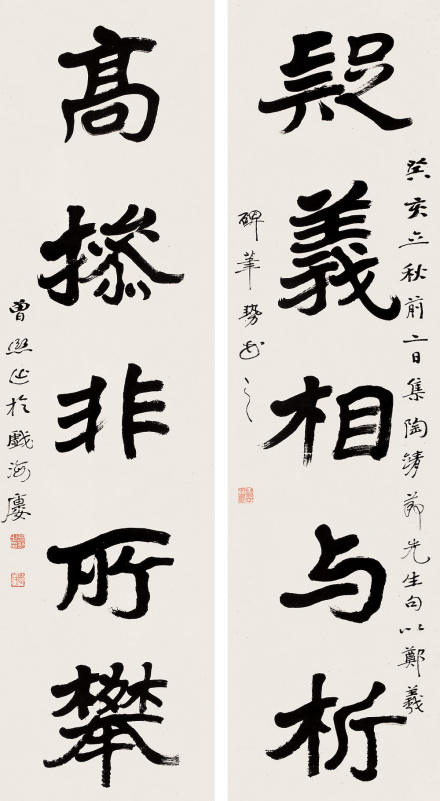 癸亥立秋前二日集陶靖節先生句以鄭羲
疑義相与析
碑筆勢之
高操非所攀
曾熙作於戲海廔